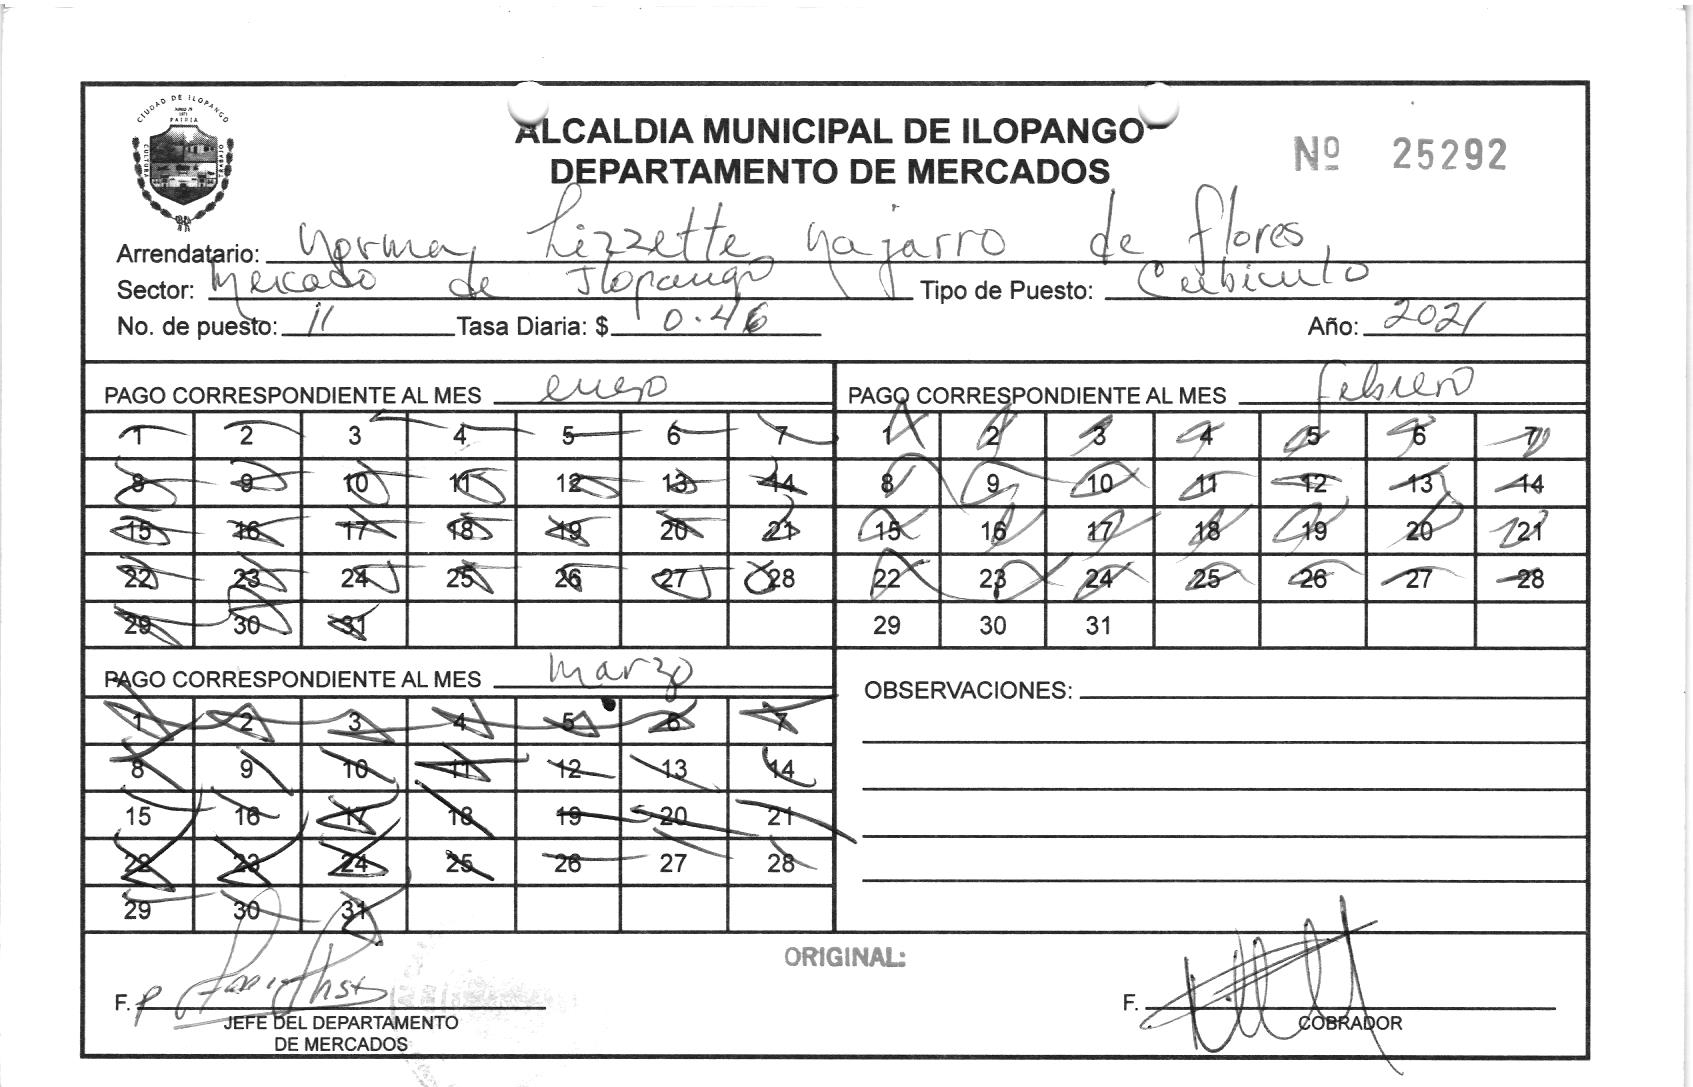 CIUDAD DE ILOPANGO
PATRIA
CULTURA
TRABAJO
ALCALDIA MUNICIPAL DE ILOPANGO
DEPARTAMENTO DE MERCADOS
Nº 25292
Arrendatario: Norma Lizzette Najarro de Flores
Sector: Mercado de Ilopango Tipo de Puesto: Cubiculo
No. de puesto: 11 Tasa Diaria: $ 0.46 Año: 2021
PAGO CORRESPONDIENTE AL MES enero
1 2 3 4 5 6 7
8 9 10 11 12 13 14
15 16 17 18 19 20 21
22 23 24 25 26 27 28
29 30 31
PAGO CORRESPONDIENTE AL MES febrero
1 2 3 4 5 6 7
8 9 10 11 12 13 14
15 16 17 18 19 20 21
22 23 24 25 26 27 28
29 30 31
PAGO CORRESPONDIENTE AL MES marzo
1 2 3 4 5 6 7
8 9 10 11 12 13 14
15 16 17 18 19 20 21
22 23 24 25 26 27 28
29 30 31
OBSERVACIONES:
ORIGINAL:
F. P
JEFE DEL DEPARTAMENTO
DE MERCADOS
F.
COBRADOR